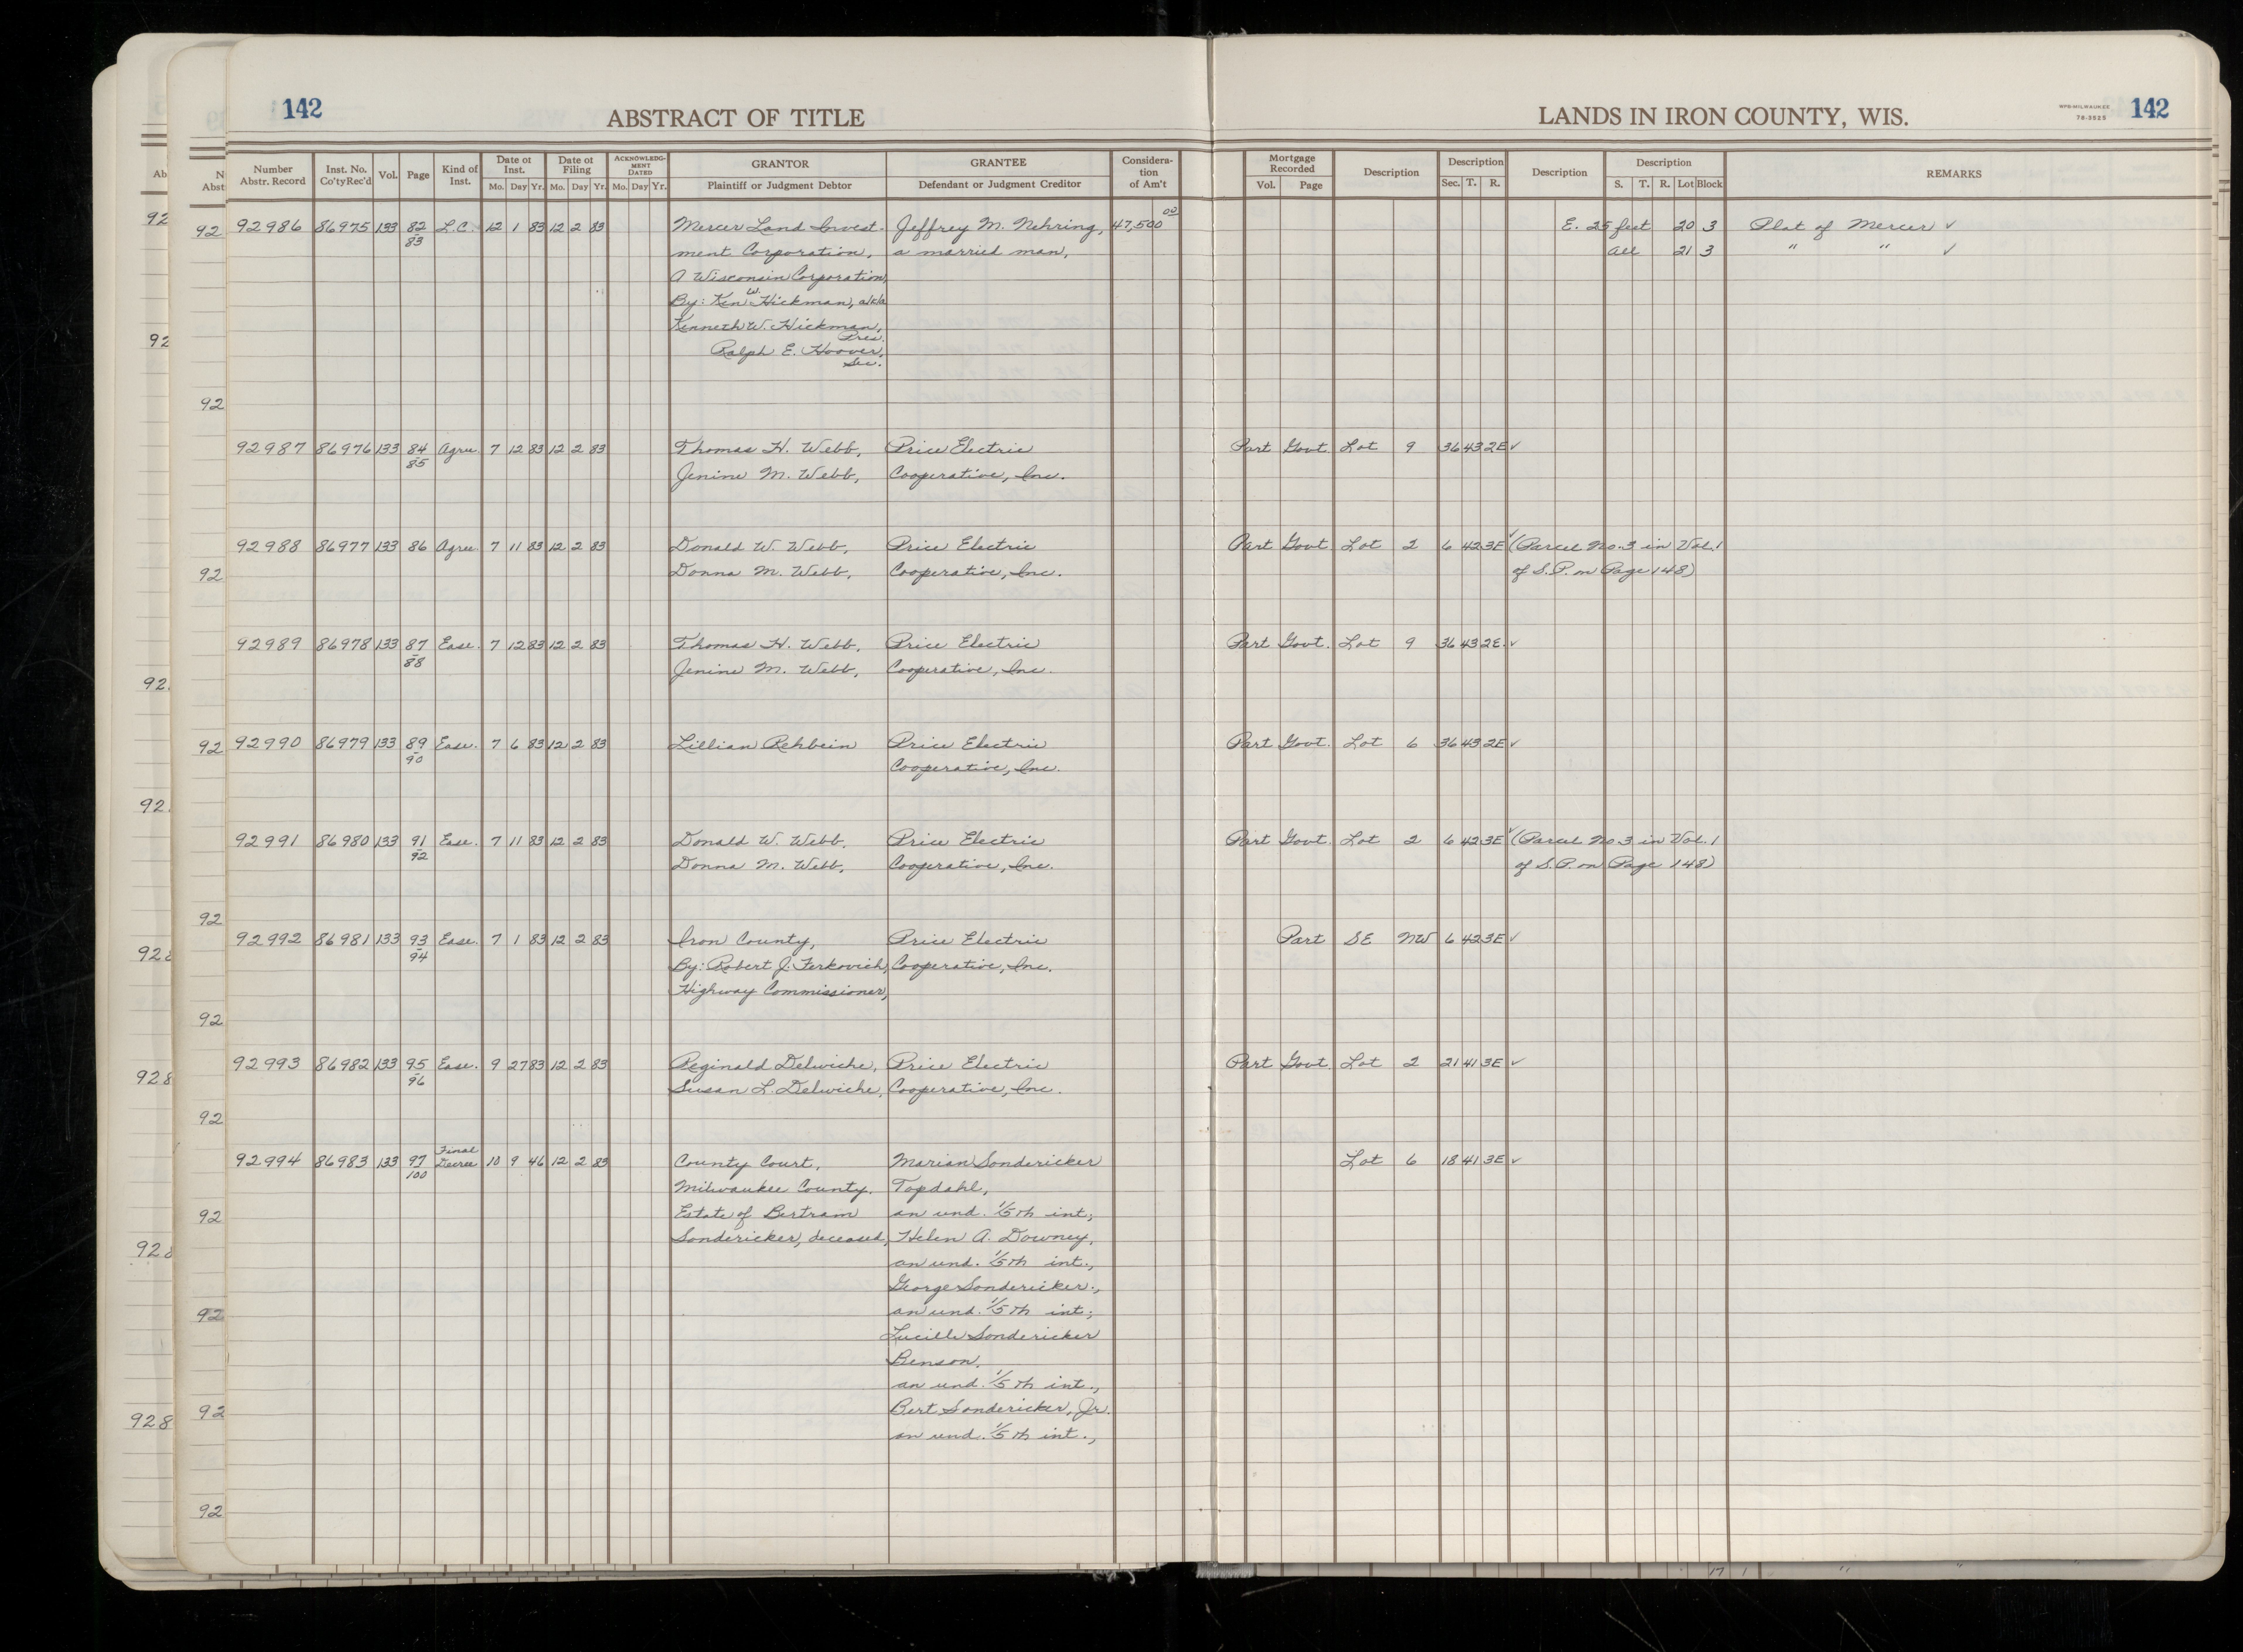 142
ABSTRACT OF TITLE
LANDS IN IRON COUNTY, WIS.
WPB-MILWAUKEE
78-3525
142
Number Abstr. Record Inst. No. Co'ty Rec'd Vol. Page Kind of Inst. Date of Inst. Mo. Day Yr. Date of Filing Mo. Day Yr. ACKNOWLEDGMENT DATED Mo. Day Yr. GRANTOR Plaintiff or Judgment Debtor GRANTEE Defendant or Judgment Creditor Consideration of Am't Mortgage Recorded Vol. Page Description Description Sec. T. R. Description Description S. T. R. Lot Block REMARKS
92986 86975 133 82 83 L.C. 12 1 83 12 2 83 Mercer Land Invest- Jeffrey M. Nehring, 47,500 00 E. 25 feet 20 3 Plat of Mercer ✓
ment Corporation, a married man, All 21 3 " " ✓
A Wisconsin Corporation,
By: Ken W. Hickman, a/k/a
Kenneth W. Hickman,
Pres.
Ralph E. Hoover,
Sec.
92987 86976 133 84 85 Agree. 7 12 83 12 2 83 Thomas H. Webb, Price Electric Part Govt. Lot 9 36 43 2E ✓
Jenine M. Webb, Cooperative, Inc.
92988 86977 133 86 Agree. 7 11 83 12 2 83 Donald W. Webb, Price Electric Part Govt Lot 2 6 42 3E ✓ (Parcel No. 3 in Vol. 1
Donna M. Webb, Cooperative, Inc. of S.P. on Page 148)
92989 86978 133 87 88 Ease. 7 12 83 12 2 83 Thomas H. Webb, Price Electric Part Govt. Lot 9 36 43 2E. ✓
Jenine M. Webb, Cooperative, Inc.
92990 86979 133 89 90 Ease. 7 6 83 12 2 83 Lillian Rehbein Price Electric Part Govt. Lot 6 36 43 2E ✓
Cooperative, Inc.
92991 86980 133 91 92 Ease. 7 11 83 12 2 83 Donald W. Webb, Price Electric Part Govt. Lot 2 6 42 3E ✓ (Parcel No. 3 in Vol. 1
Donna M. Webb, Cooperative, Inc. of S.P. on Page 148)
92992 86981 133 93 94 Ease. 7 1 83 12 2 83 Iron County, Price Electric Part SE NW 6 42 3E ✓
By: Robert J. Ferkovich, Cooperative, Inc.
Highway Commissioner,
92993 86982 133 95 96 Ease. 9 27 83 12 2 83 Reginald Delwiche, Price Electric Part Govt. Lot 2 21 41 3E ✓
Susan L. Delwiche, Cooperative, Inc.
92994 86983 133 97 100 Final Decree 10 9 46 12 2 83 County Court, Marian Sondericker Lot 6 18 41 3E ✓
Milwaukee County. Topdahl,
Estate of Bertram an und. 1/5 th int;
Sondericker, deceased, Helen A. Downey,
an und. 1/5 th int.,
George Sondericker.,
an und. 1/5 th int;
Lucille Sondericker
Benson,
an und. 1/5 th int.,
Bert Sondericker, Jr.
an und. 1/5 th int.,